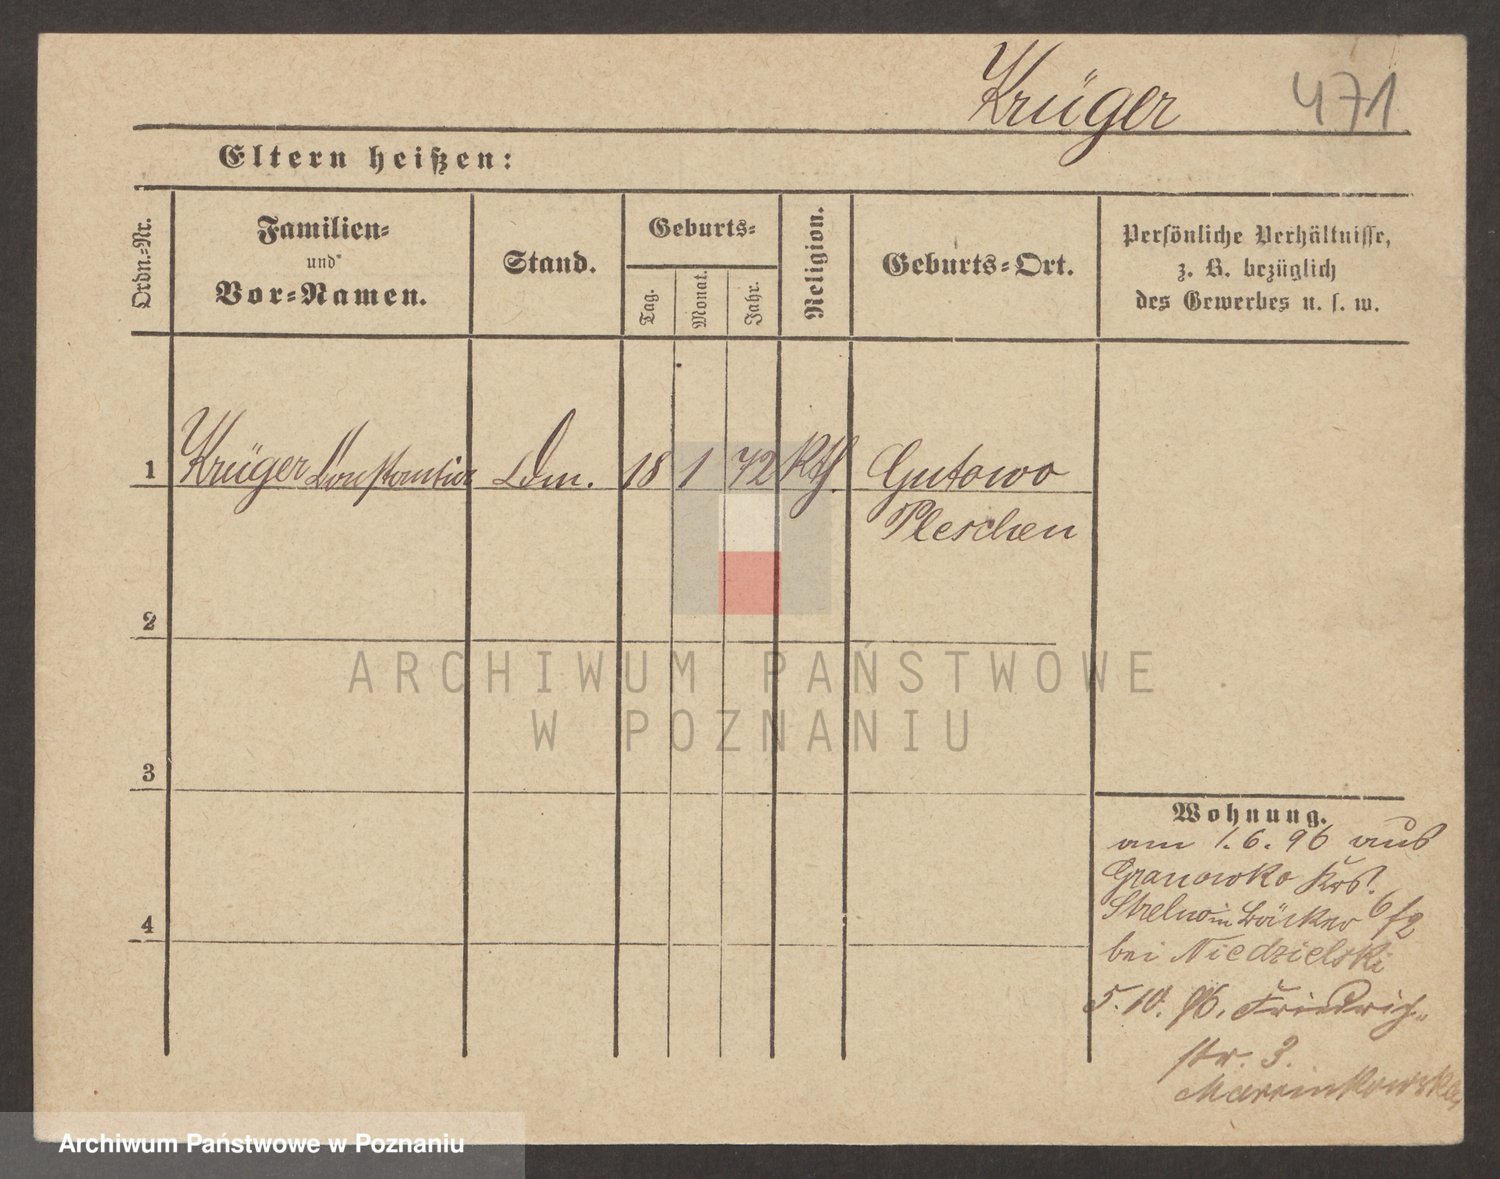 Krüger 471
Eltern heißen:
Ordn.-Nr.
Familien-
und
Vor-Namen.
Stand.
Geburts-
Tag.
Monat.
Jahr.
Religion.
Geburts-Ort.
Persönliche Verhältnisse,
z. B. bezüglich
des Gewerbes u. s. w.
1 Krüger Constantia 18 1 72 Kth. Gutowo
Pleschen
2
3
4
Wohnung.
am 1.6.96 aus
Granowko Krs.
Strelno in Bäcker 6/2
bei Niedzielski
5.10.96. Friedrich-
str. 3.
ARCHIWUM PAŃSTWOWE
W POZNANIU
Archiwum Państwowe w Poznaniu